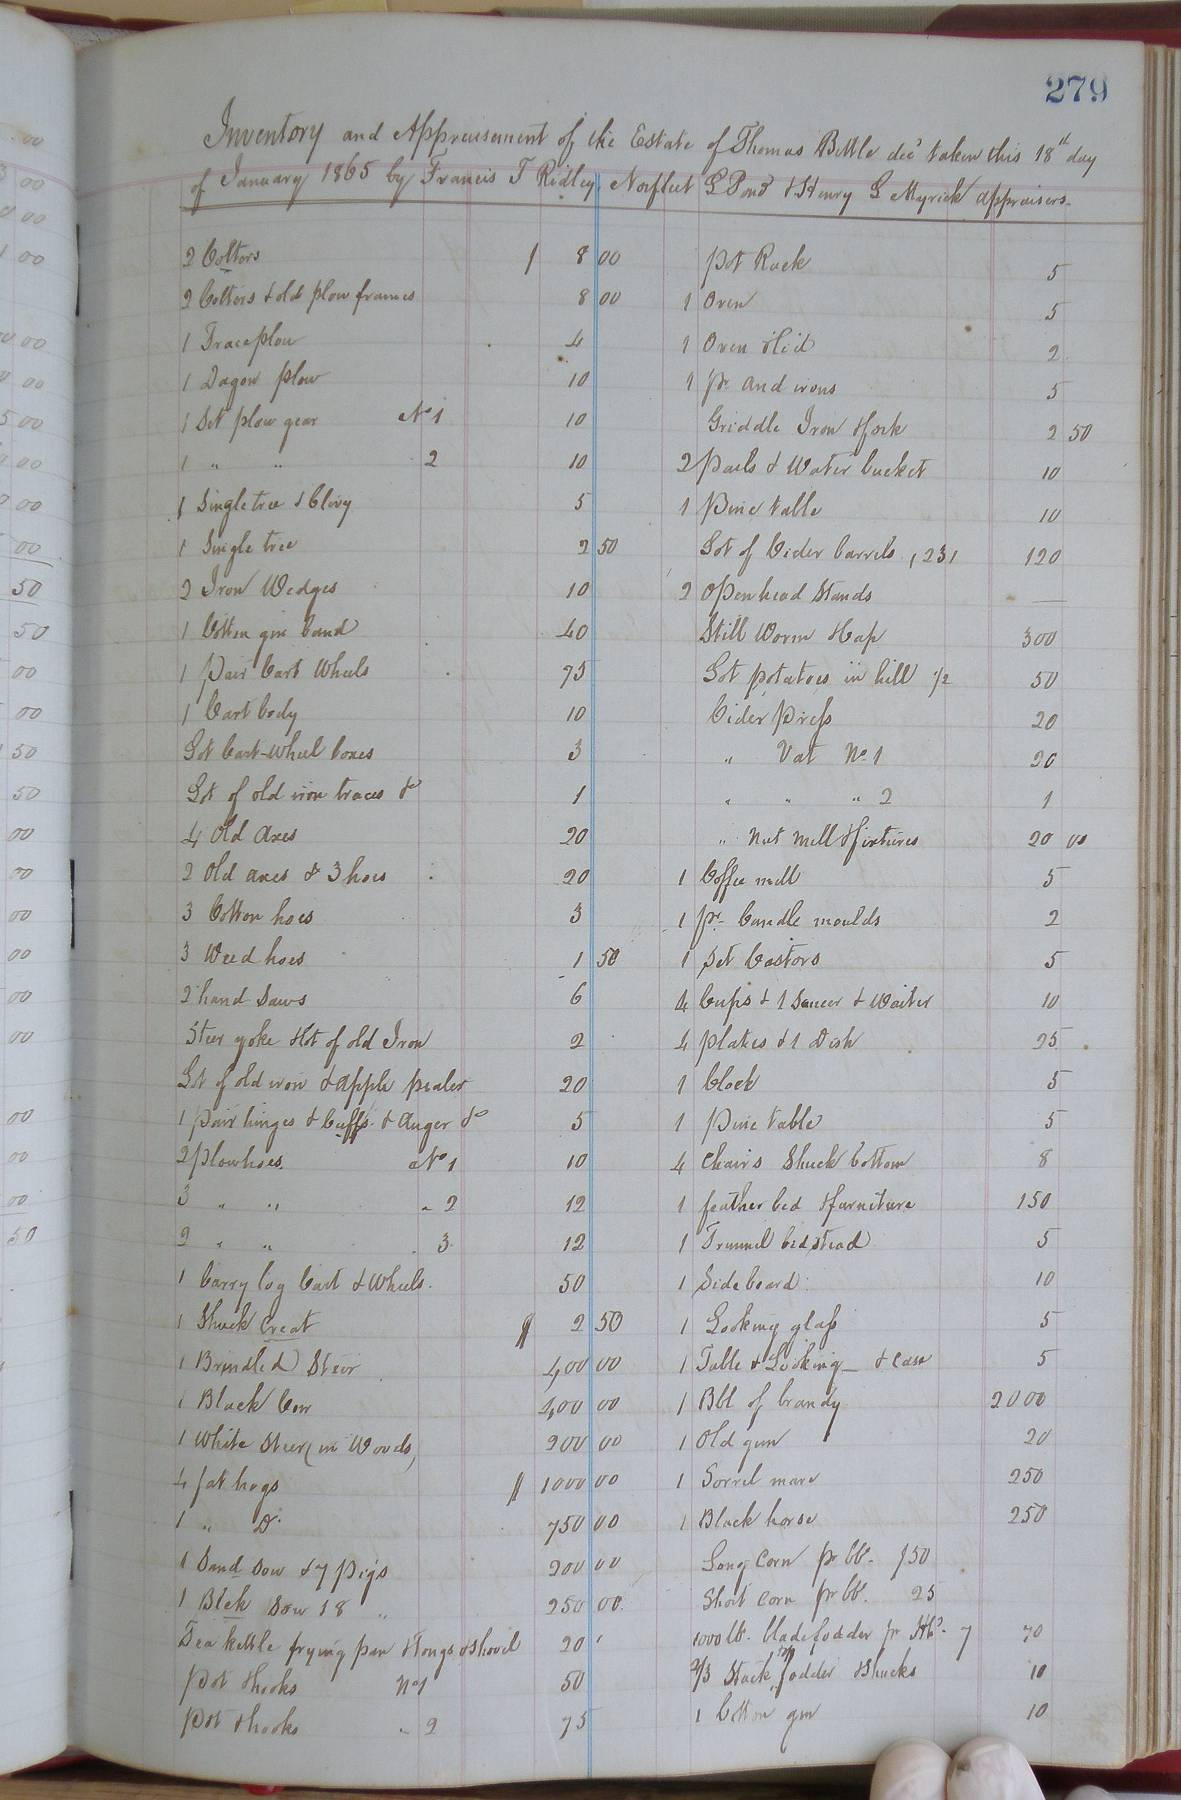 279
Inventory and Appraisement of the Estate of Thomas Bittle decd taken this 18th day
of January 1865 by Francis T Ridley, Norfleet G Pond & Henry G Myrick appraisers
2 Coltors $ 8 00
2 Coltors & old plow frames 8 00
1 Trace plow 4
1 Dagon plow 10
1 Set plow gear No 1 10
1 " " 2 10
1 Singletree & Clivy 5
1 Single tree 2 50
2 Iron Wedges 10
1 Cotton gin band 40
1 pair Cart Wheels 75
1 Cart body 10
Lot Cart-Wheel boxes 3
Lot of old iron traces &c 1
4 Old axes 20
2 Old axes & 3 hoes 20
3 Cotton hoes 3
3 Weed hoes 1 50
2 hand saws 6
Steer yoke & lot of old Iron 2
Lot of old iron & apple pealer 20
1 pair hinges & Cuffs & Auger &c 5
2 plowhoes No 1 10
3 " " " 2 12
2 " " 3 12
1 Carry log Cart & Wheels 50
1 Shuck Creat $ 2 50
1 Brindled Steer 400 00
1 Black Cow 400 00
1 White Steer (in Woods) 200 00
4 fat hogs $ 1000 00
1 " Do 750 00
1 Sand Sow & 7 pigs 200 00
1 Blck Sow & 8 " 250 00
Tea kettle frying pan & tongs & shovel 20
Pot & hooks No 1 50
Pot & hooks " 2 75
Pot Rack 5
1 Oven 5
1 Oven & lid 2
1 pr And irons 5
Griddle Iron & fork 2 50
2 pails & Water bucket 10
1 Pine table 10
Lot of Cider barrels (23) 120
2 Open head Stands —
Still Worm & Cap 300
Lot potatoes in hill 1/2 50
Cider Press 20
" Vat No 1 20
" " " 2 1
" Nut mill & fixtures 20 00
1 Coffee mill 5
1 pr Candle moulds 2
1 Set Castors 5
4 Cups & 1 Saucer & Waiter 10
4 plates & 1 Dish 25
1 Clock 5
1 Pine table 5
4 Chairs Shuck bottom 8
1 feather bed & furniture 150
1 Trunnel bedstead 5
1 Sideboard 10
1 Looking glass 5
1 Table & Looking — & Case 5
1 Bbl of brandy 2000
1 Old gun 20
1 Sorrel mare 250
1 Black horse 250
Long Corn pr bbl. $50
Short Corn pr bbl. 25
1000 lb. blade fodder pr Hd 7 70
2/3 Stack top fodder & shucks 10
1 Cotton gin 10